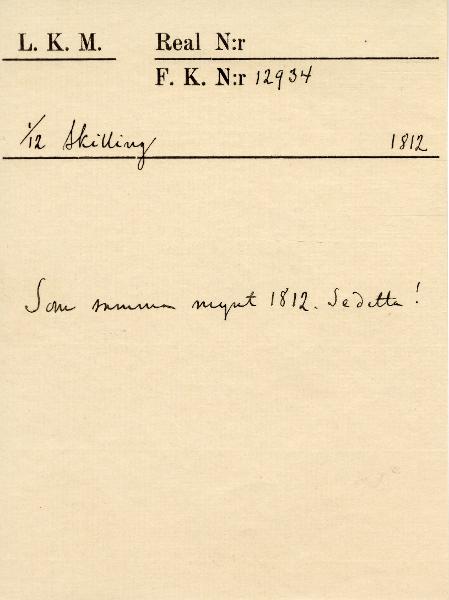 L. K. M. Real N:r
F. K. N:r 12934
1/12 Skilling 1812
Som samma mynt 1812. Se detta!